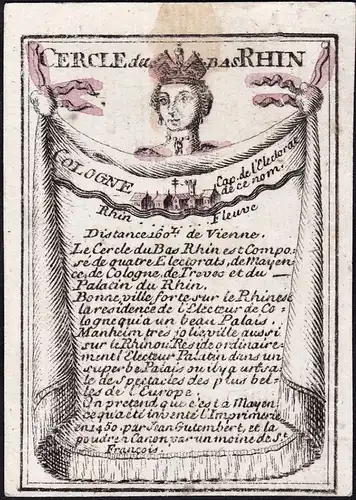 CERCLE du BAS RHIN
COLOGNE Cap. de l'Electorat
de ce nom.
Rhin Fleuve
Distance 160 li de Vienne.
Le Cercle du Bas Rhin est Compo-
sé de quatre Electorats, de Mayen
ce, de Cologne, de Treves et du
Palatin du Rhin.
Bonne, ville forte sur le Rhin est
la residence de l'Electeur de Co-
logne qui a un beau Palais.
Manheim tres jolie ville aussi
sur le Rhin ou Reside ordinaire-
ment l'Electeur Palatin dans un
superbe Palais ou il y a une sal-
le de Spectacles des plus bel-
les de l'Europe.
On pretend que c'est à Mayen
ce qu'a été inventé l'Imprimerie
en 1450. par Jean Gutembert, et la
poudre a Canon par un moine de St
François.